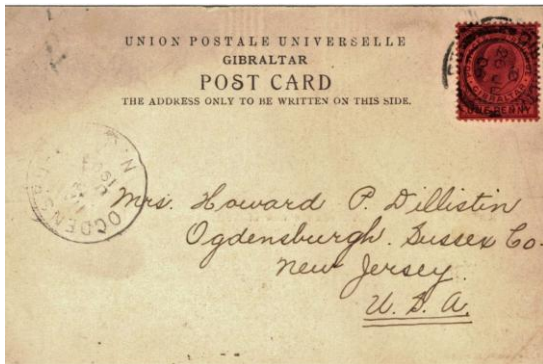 UNION POSTALE UNIVERSELLE
GIBRALTAR
POST CARD
THE ADDRESS ONLY TO BE WRITTEN ON THIS SIDE.
GIBRALTAR
ONE PENNY
OGDENSBURG N.J.
Mrs. Howard P. Dillistin
Ogdensburgh. Sussex Co.
New Jersey.
U.S.A.